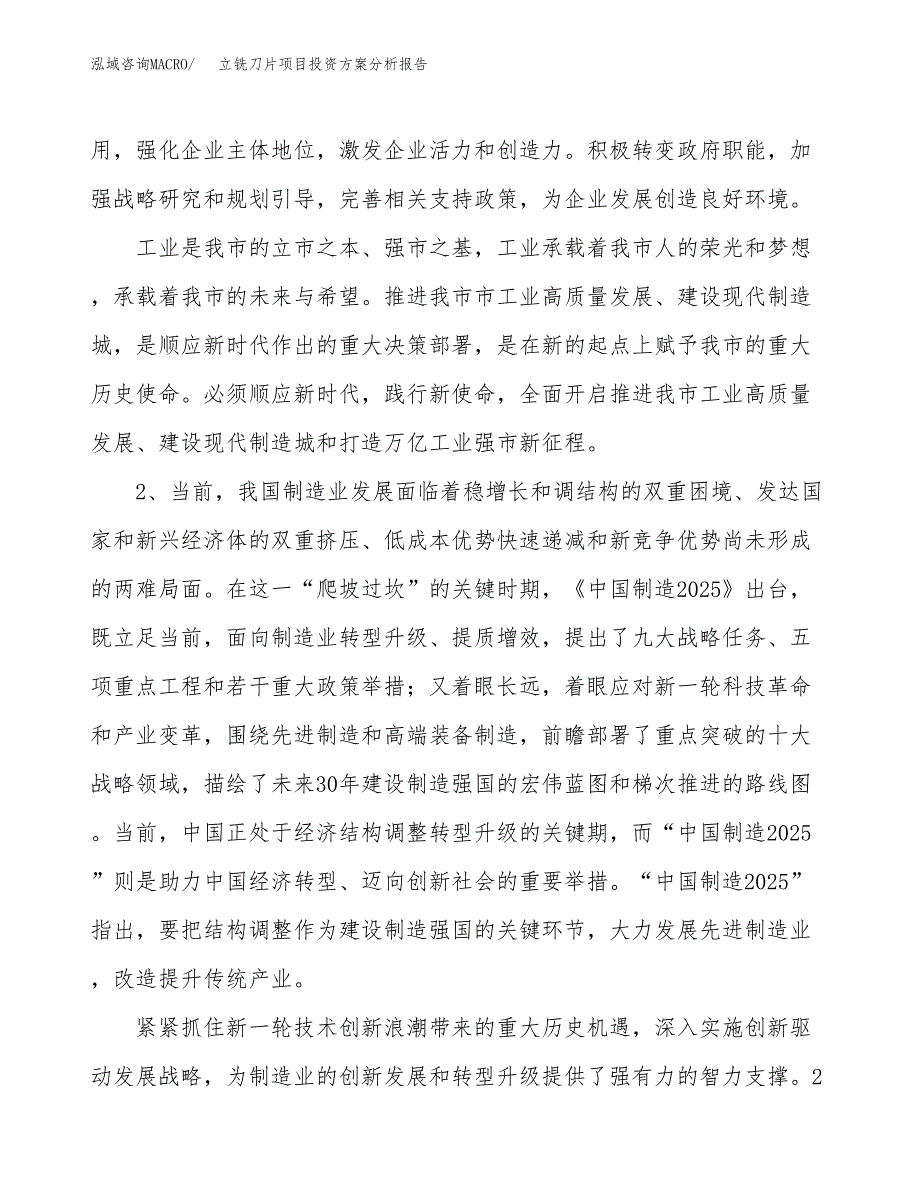 泓域咨询MACRO/ 立铣刀片项目投资方案分析报告
用，强化企业主体地位，激发企业活力和创造力。积极转变政府职能，加
强战略研究和规划引导，完善相关支持政策，为企业发展创造良好环境。
工业是我市的立市之本、强市之基，工业承载着我市人的荣光和梦想
，承载着我市的未来与希望。推进我市市工业高质量发展、建设现代制造
城，是顺应新时代作出的重大决策部署，是在新的起点上赋予我市的重大
历史使命。必须顺应新时代，践行新使命，全面开启推进我市工业高质量
发展、建设现代制造城和打造万亿工业强市新征程。
2、当前，我国制造业发展面临着稳增长和调结构的双重困境、发达国
家和新兴经济体的双重挤压、低成本优势快速递减和新竞争优势尚未形成
的两难局面。在这一“爬坡过坎”的关键时期，《中国制造2025》出台，
既立足当前，面向制造业转型升级、提质增效，提出了九大战略任务、五
项重点工程和若干重大政策举措；又着眼长远，着眼应对新一轮科技革命
和产业变革，围绕先进制造和高端装备制造，前瞻部署了重点突破的十大
战略领域，描绘了未来30年建设制造强国的宏伟蓝图和梯次推进的路线图
。当前，中国正处于经济结构调整转型升级的关键期，而“中国制造2025
”则是助力中国经济转型、迈向创新社会的重要举措。“中国制造2025”
指出，要把结构调整作为建设制造强国的关键环节，大力发展先进制造业
，改造提升传统产业。
紧紧抓住新一轮技术创新浪潮带来的重大历史机遇，深入实施创新驱
动发展战略，为制造业的创新发展和转型升级提供了强有力的智力支撑。2